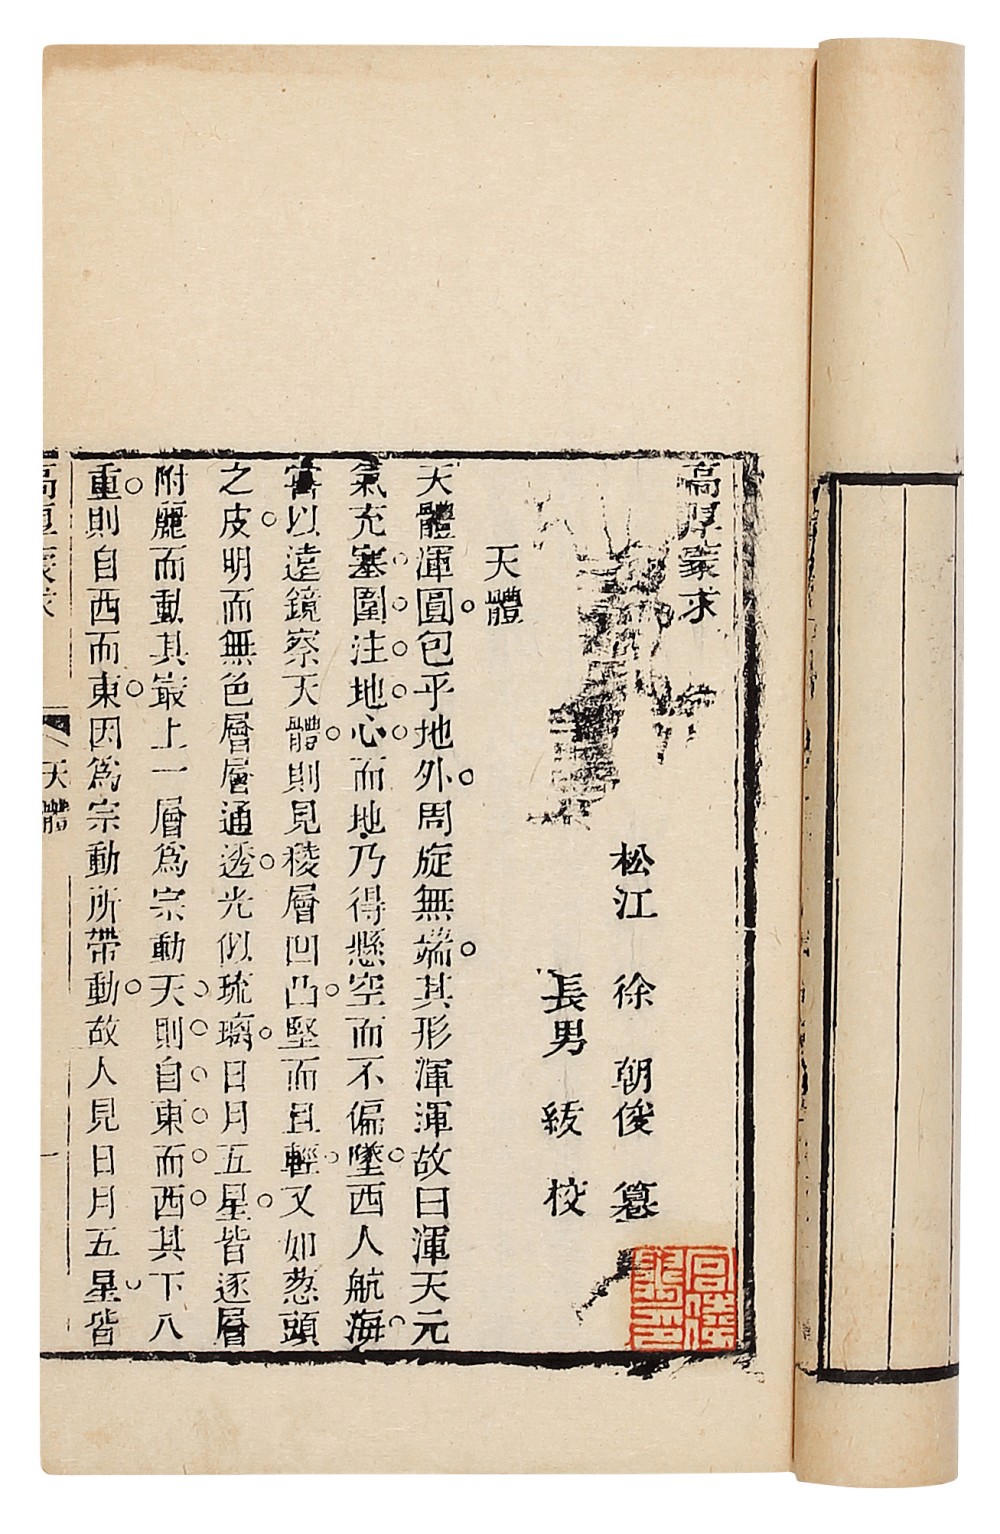 高厚蒙求
松江 徐朝俊 纂
長男 紱 校
天體
天體渾圓包乎地外周旋無端其形渾渾故曰渾天元
氣充塞圍注地心而地乃得懸空而不偏墜西人航海
嘗以遠鏡察天體則見稜層凹凸堅而且輕又如葱頭
之皮明而無色層層通透光似琉璃日月五星皆逐層
附麗而動其最上一層爲宗動天則自東而西其下八
重則自西而東因爲宗動所帶動故人見日月五星皆
高厚蒙求
天體
一